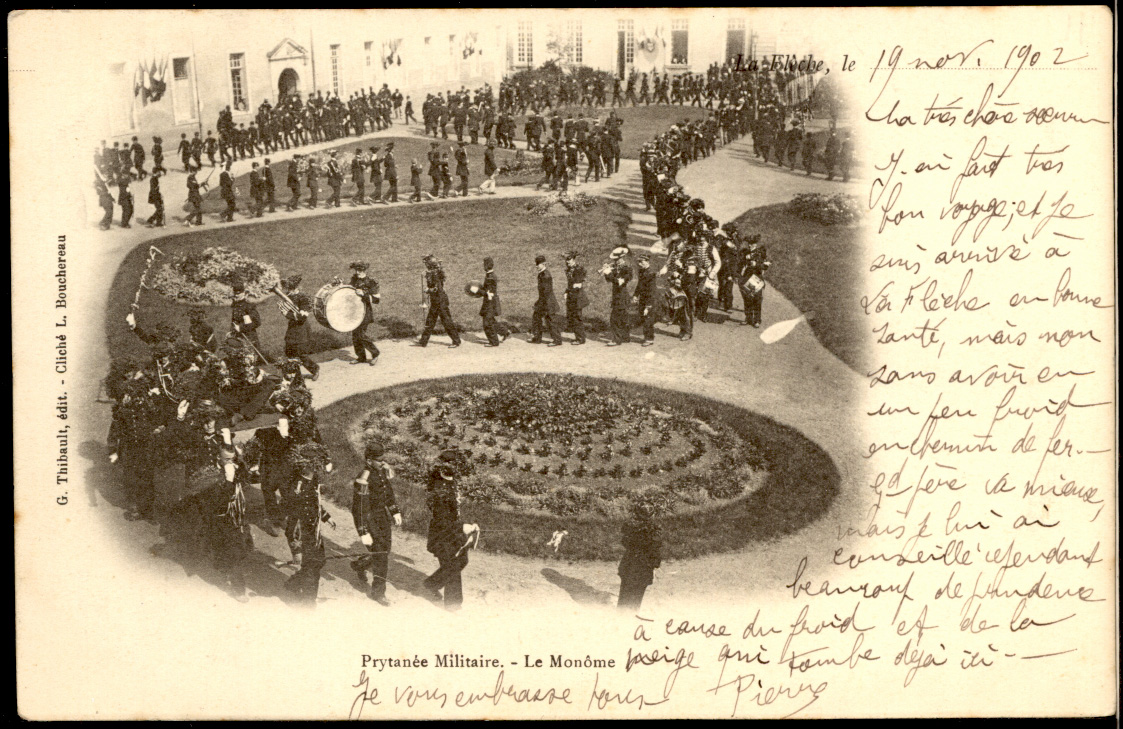 La Flèche, le 19 nov. 1902
Ma très chère sœur
J'ai fait très
bon voyage, et je
suis arrivé à
La Flèche en bonne
santé, mais non
sans avoir eu
un peu froid
en chemin de fer. —
gd père va mieux,
mais je lui ai
conseillé cependant
beaucoup de prudence
à cause du froid et de la
neige qui tombe déjà ici. —
Je vous embrasse tous Pierre
Prytanée Militaire. - Le Monôme
G. Thibault, édit. - Cliché L. Bouchereau